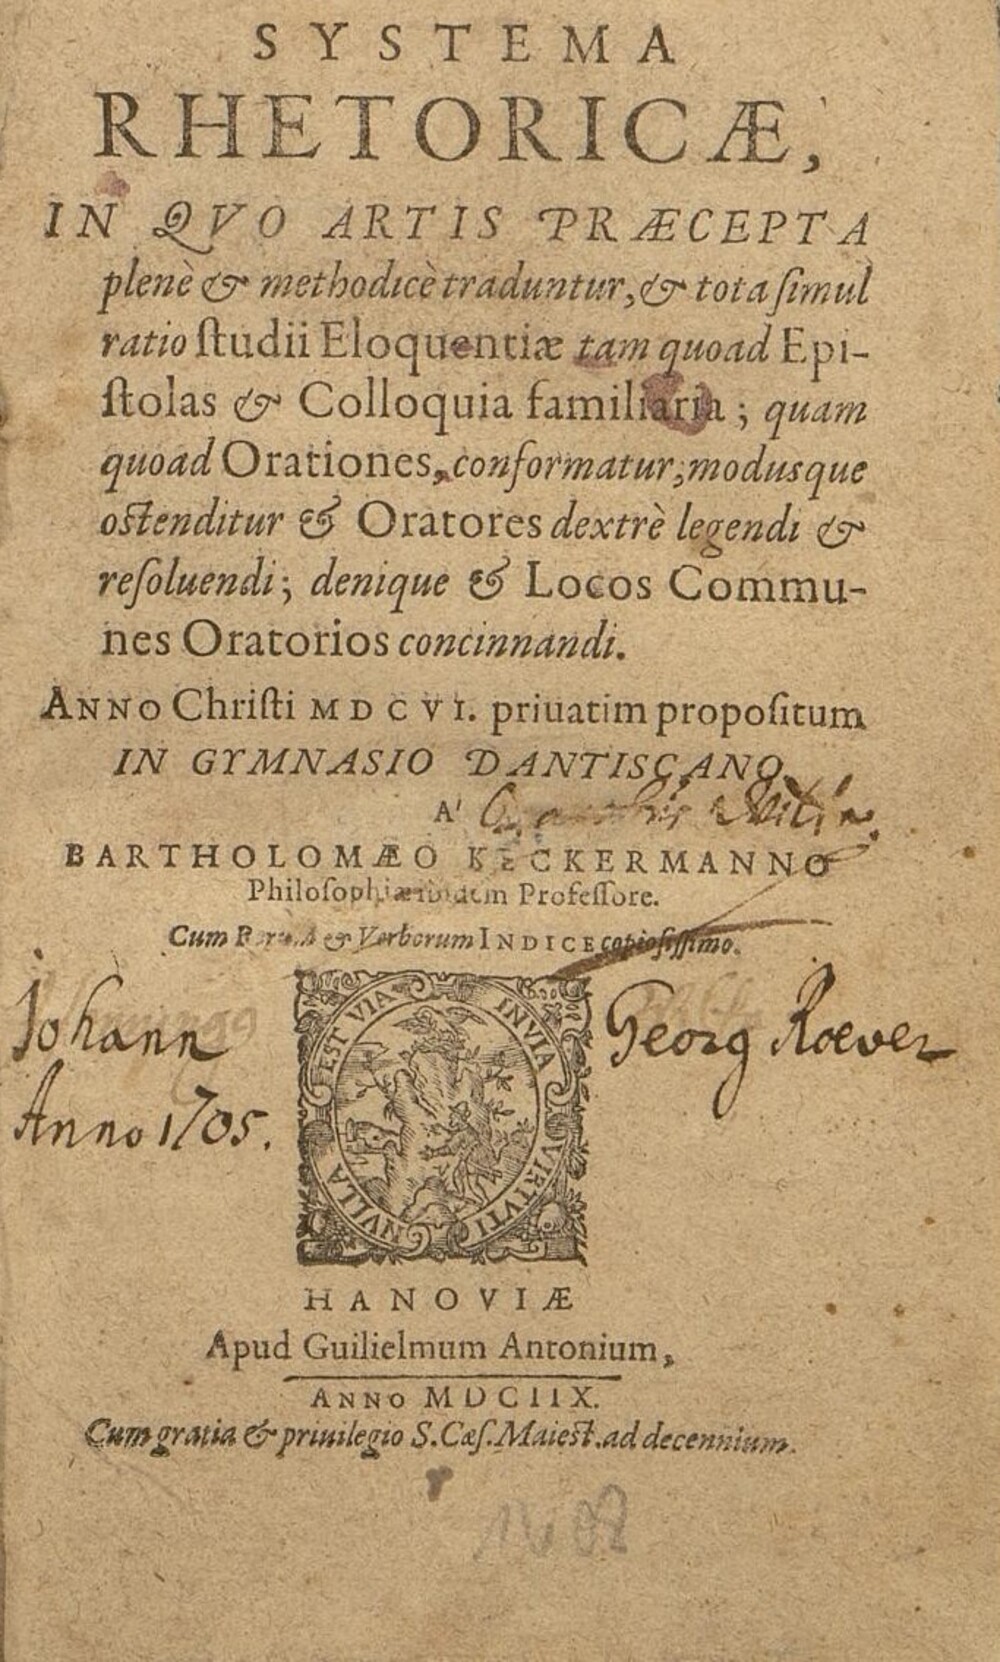 SYSTEMA
RHETORICÆ,
IN QVO ARTIS PRÆCEPTA
plenè & methodicè traduntur, & tota ſimul
ratio ſtudii Eloquentiæ tam quoad Epi-
ſtolas & Colloquia familiaria; quam
quoad Orationes, conformatur; modusque
oſtenditur & Oratores dextrè legendi &
reſoluendi; denique & Locos Commu-
nes Oratorios concinnandi.
ANNO Chriſti MDCVI. priuatim propoſitum
IN GYMNASIO DANTISCANO
A'
BARTHOLOMÆO KECKERMANNO
Philoſophiæ ibidem Profeſſore.
Cum Rerum & Verborum INDICE copioſiſſimo.
Johann Georg Roever
Anno 1705.
INVIA VIRTVTI NVLLA EST VIA
HANOVIÆ
Apud Guilielmum Antonium,
ANNO MDCIIX.
Cum gratia & priuilegio S. Cæſ. Maieſt. ad decennium.